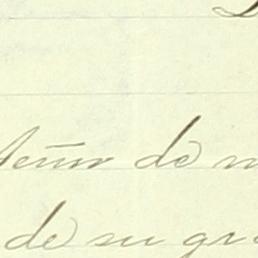 Señor de m
de su gra